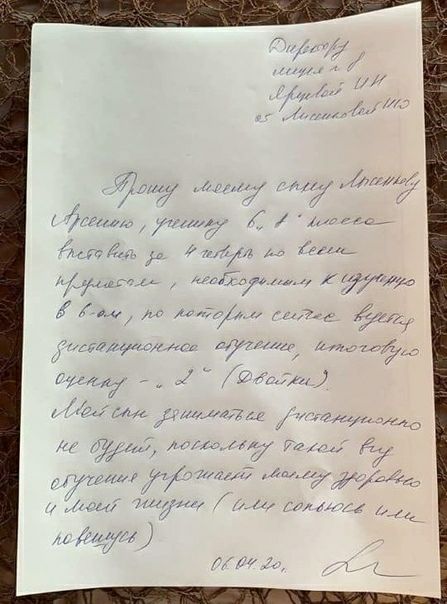 Директору
лицея № 8
Ярцевой И Н
от Лысенковой И Ю
Прошу моему сыну Лысенкову
Арсению, ученику 6 „А" класса
выставить за 4 четверть по всем
предметам, необходимым к изучению
в 6-ом, по которым сейчас ведется
дистанционное обучение, итоговую
оценку - „2" (Двойки).
Мой сын заниматься дистанционно
не будет, поскольку такой вид
обучения угрожает моему здоровью
и моей жизни (или сопьюсь или
повешусь)
06.04.20г.